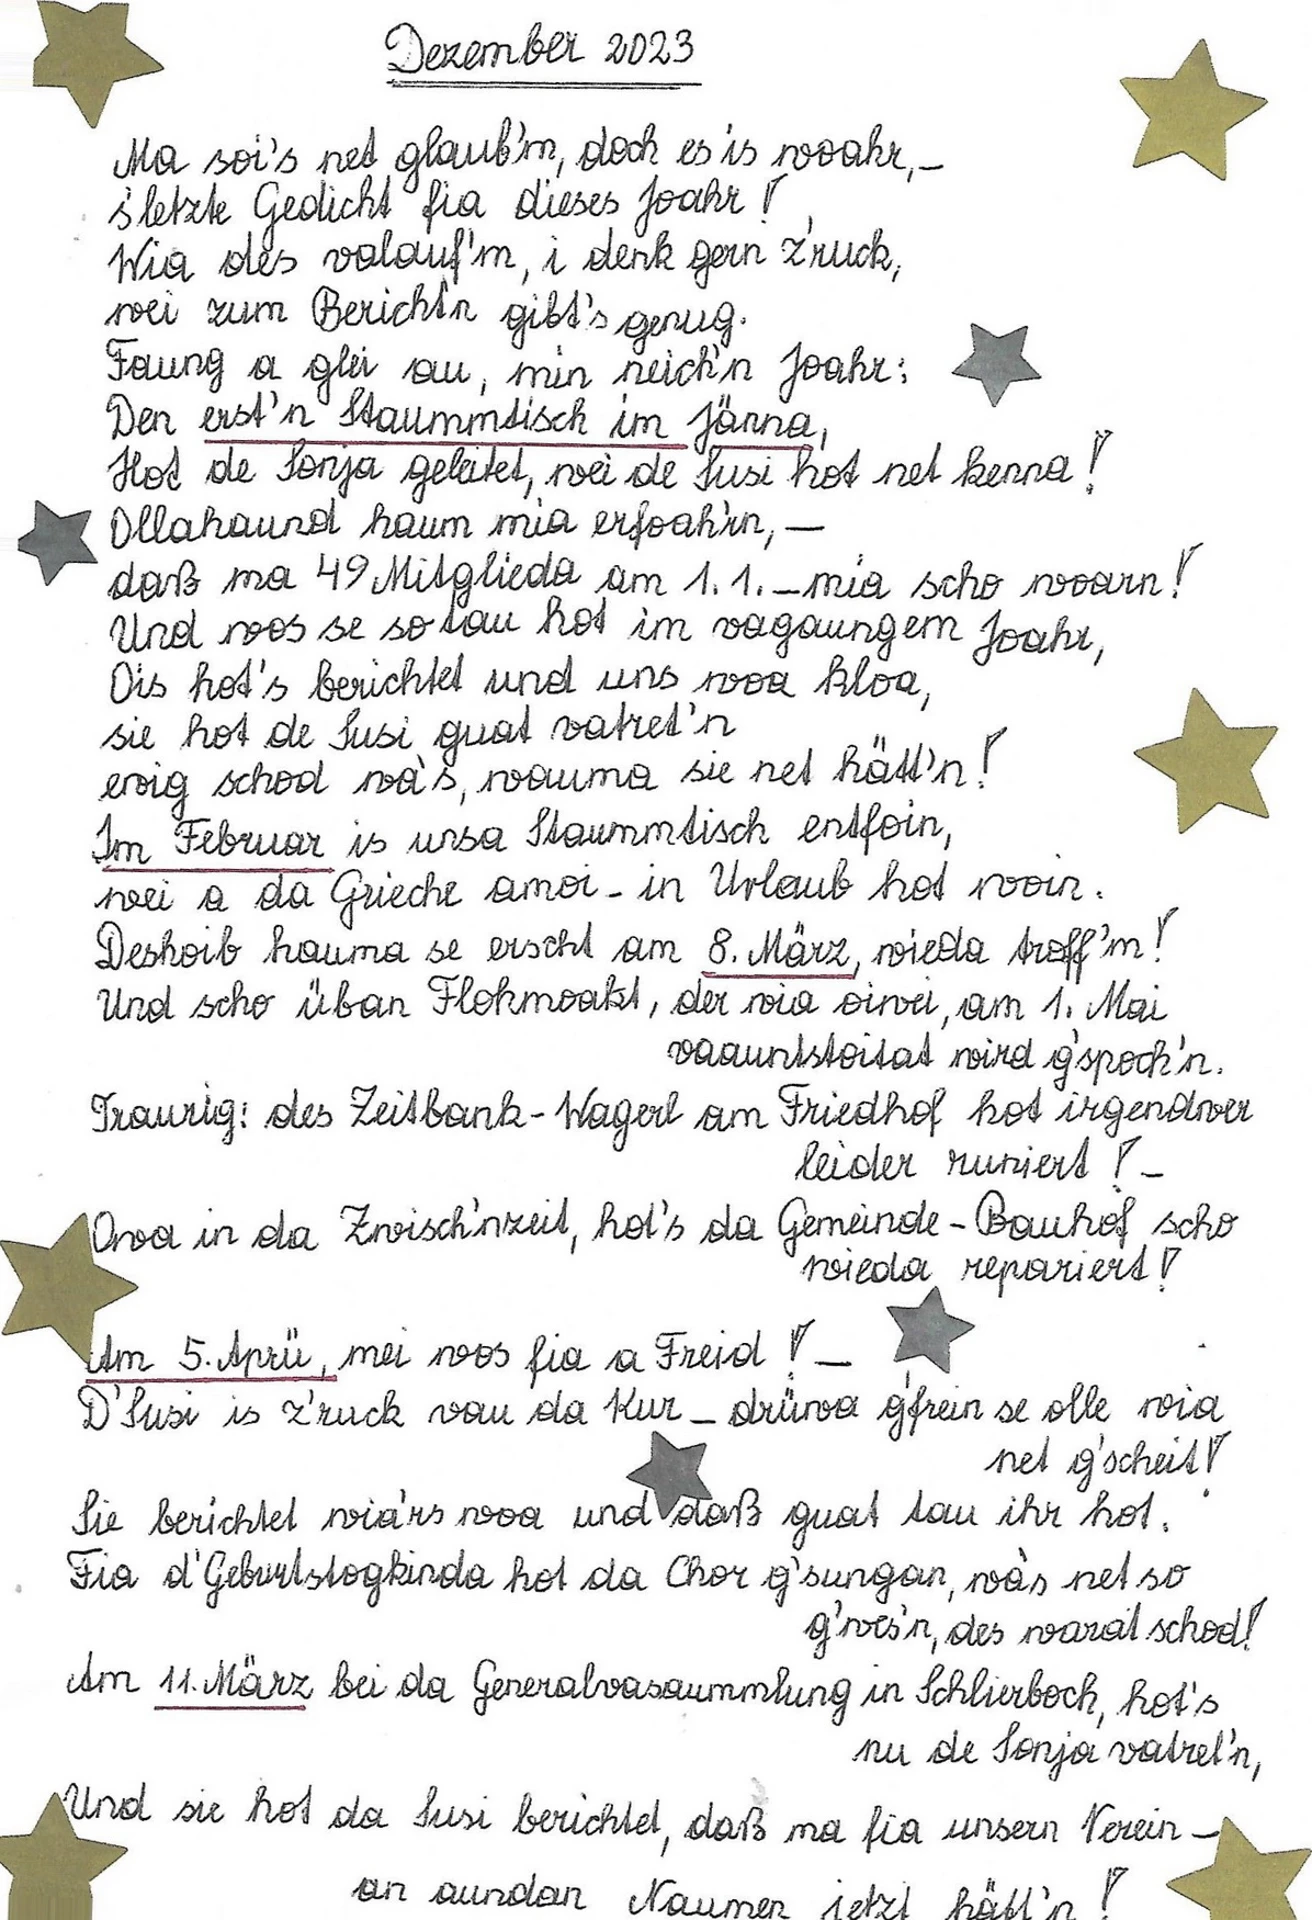 Dezember 2023
Ma soi's net glaub'm, doch es is woahr,–
s'letzte Gedicht fia dieses Joahr!
Wia des valauf'm, i denk gern z'ruck,
wei zum Bericht'n gibt's genug.
Faung a glei au, min neich'n Joahr:
Den erst'n Staummtisch im Jänna,
Hot de Sonja geleitet, wei de Susi hot net kenna!
Ollahaund haum mia erfoah'rn,–
daß ma 49 Mitglieda am 1.1.–mia scho woarn!
Und wos se so tau hot im vagaungem Joahr,
Ois hot's berichtet und uns woa kloa,
sie hot de Susi guat vatret'n
ewig schod wa's, wauma sie net hätt'n!
Im Februar is unsa Staummtisch entfoin,
wei a da Grieche amoi - in Urlaub hot woin.
Deshoib hauma se erscht am 8. März, wieda troff'm!
Und scho üban Flohmoakt, der wia oiwei, am 1. Mai
vaauntstoitat wird g'spoch'n.
Traurig: des Zeitbank-Wagerl am Friedhof hot irgendwer
leider runiert!–
Owa in da Zwisch'nzeit, hot's da Gemeinde-Bauhof scho
wieda repariert!
Am 5. Aprü, mei wos fia a Freid!–
D'Susi is z'ruck vau da Kur – drüwa g'frein se olle wia
net g'scheit!
Sie berichtet wia'rs woa und daß guat tau ihr hot.
Fia d'Geburtstogkinda hot da Chor g'sungan, wa's net so
g'wes'n, des warat schod!
Am 11. März bei da Generalvasaummlung in Schlierboch, hot's
nu de Sonja vatret'n,
Und sie hot da Susi berichtet, daß ma fia unsern Verein –
an aundan Naumen jetzt hätt'n!